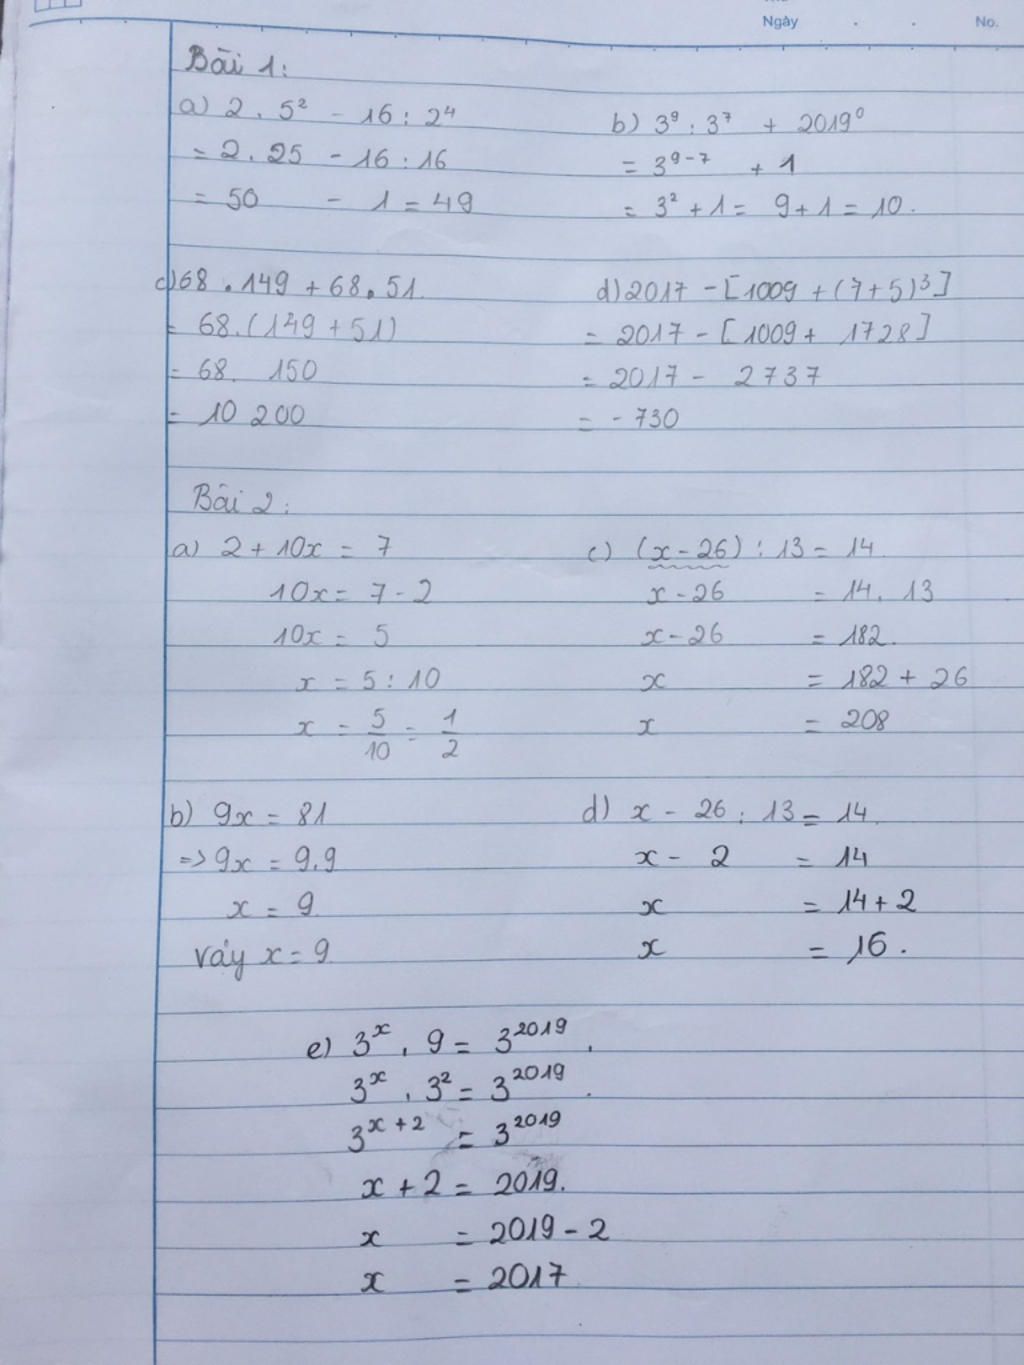 Ngày
No.
Bài 1:
a) 2 . 5² - 16 : 2⁴
= 2 . 25 - 16 : 16
= 50 - 1 = 49
b) 3⁹ : 3⁷ + 2019⁰
= 3⁹⁻⁷ + 1
= 3² + 1 = 9 + 1 = 10.
c) 68 . 149 + 68 . 51.
= 68 . (149 + 51)
= 68 . 150
= 10 200
d) 2017 - [1009 + (7 + 5)³]
= 2017 - [1009 + 1728]
= 2017 - 2737
= - 730
Bài 2:
a) 2 + 10x = 7
10x = 7 - 2
10x = 5
x = 5 : 10
x = 5/10 = 1/2
c) (x - 26) : 13 = 14
x - 26 = 14 . 13
x - 26 = 182.
x = 182 + 26
x = 208
b) 9x = 81
=> 9x = 9.9
x = 9
Váy x = 9
d) x - 26 : 13 = 14
x - 2 = 14
x = 14 + 2
x = 16.
e) 3ˣ . 9 = 3²⁰¹⁹.
3ˣ . 3² = 3²⁰¹⁹.
3ˣ⁺² = 3²⁰¹⁹
x + 2 = 2019.
x = 2019 - 2
x = 2017